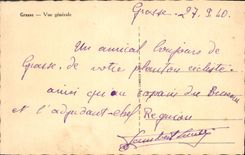 Grasse — Vue générale
Grasse 27.9.40.
Un amical bonjour de
Grasse, de votre planton cycliste
ainsi qu'au copain du Bureau
et l'adjudant-chef